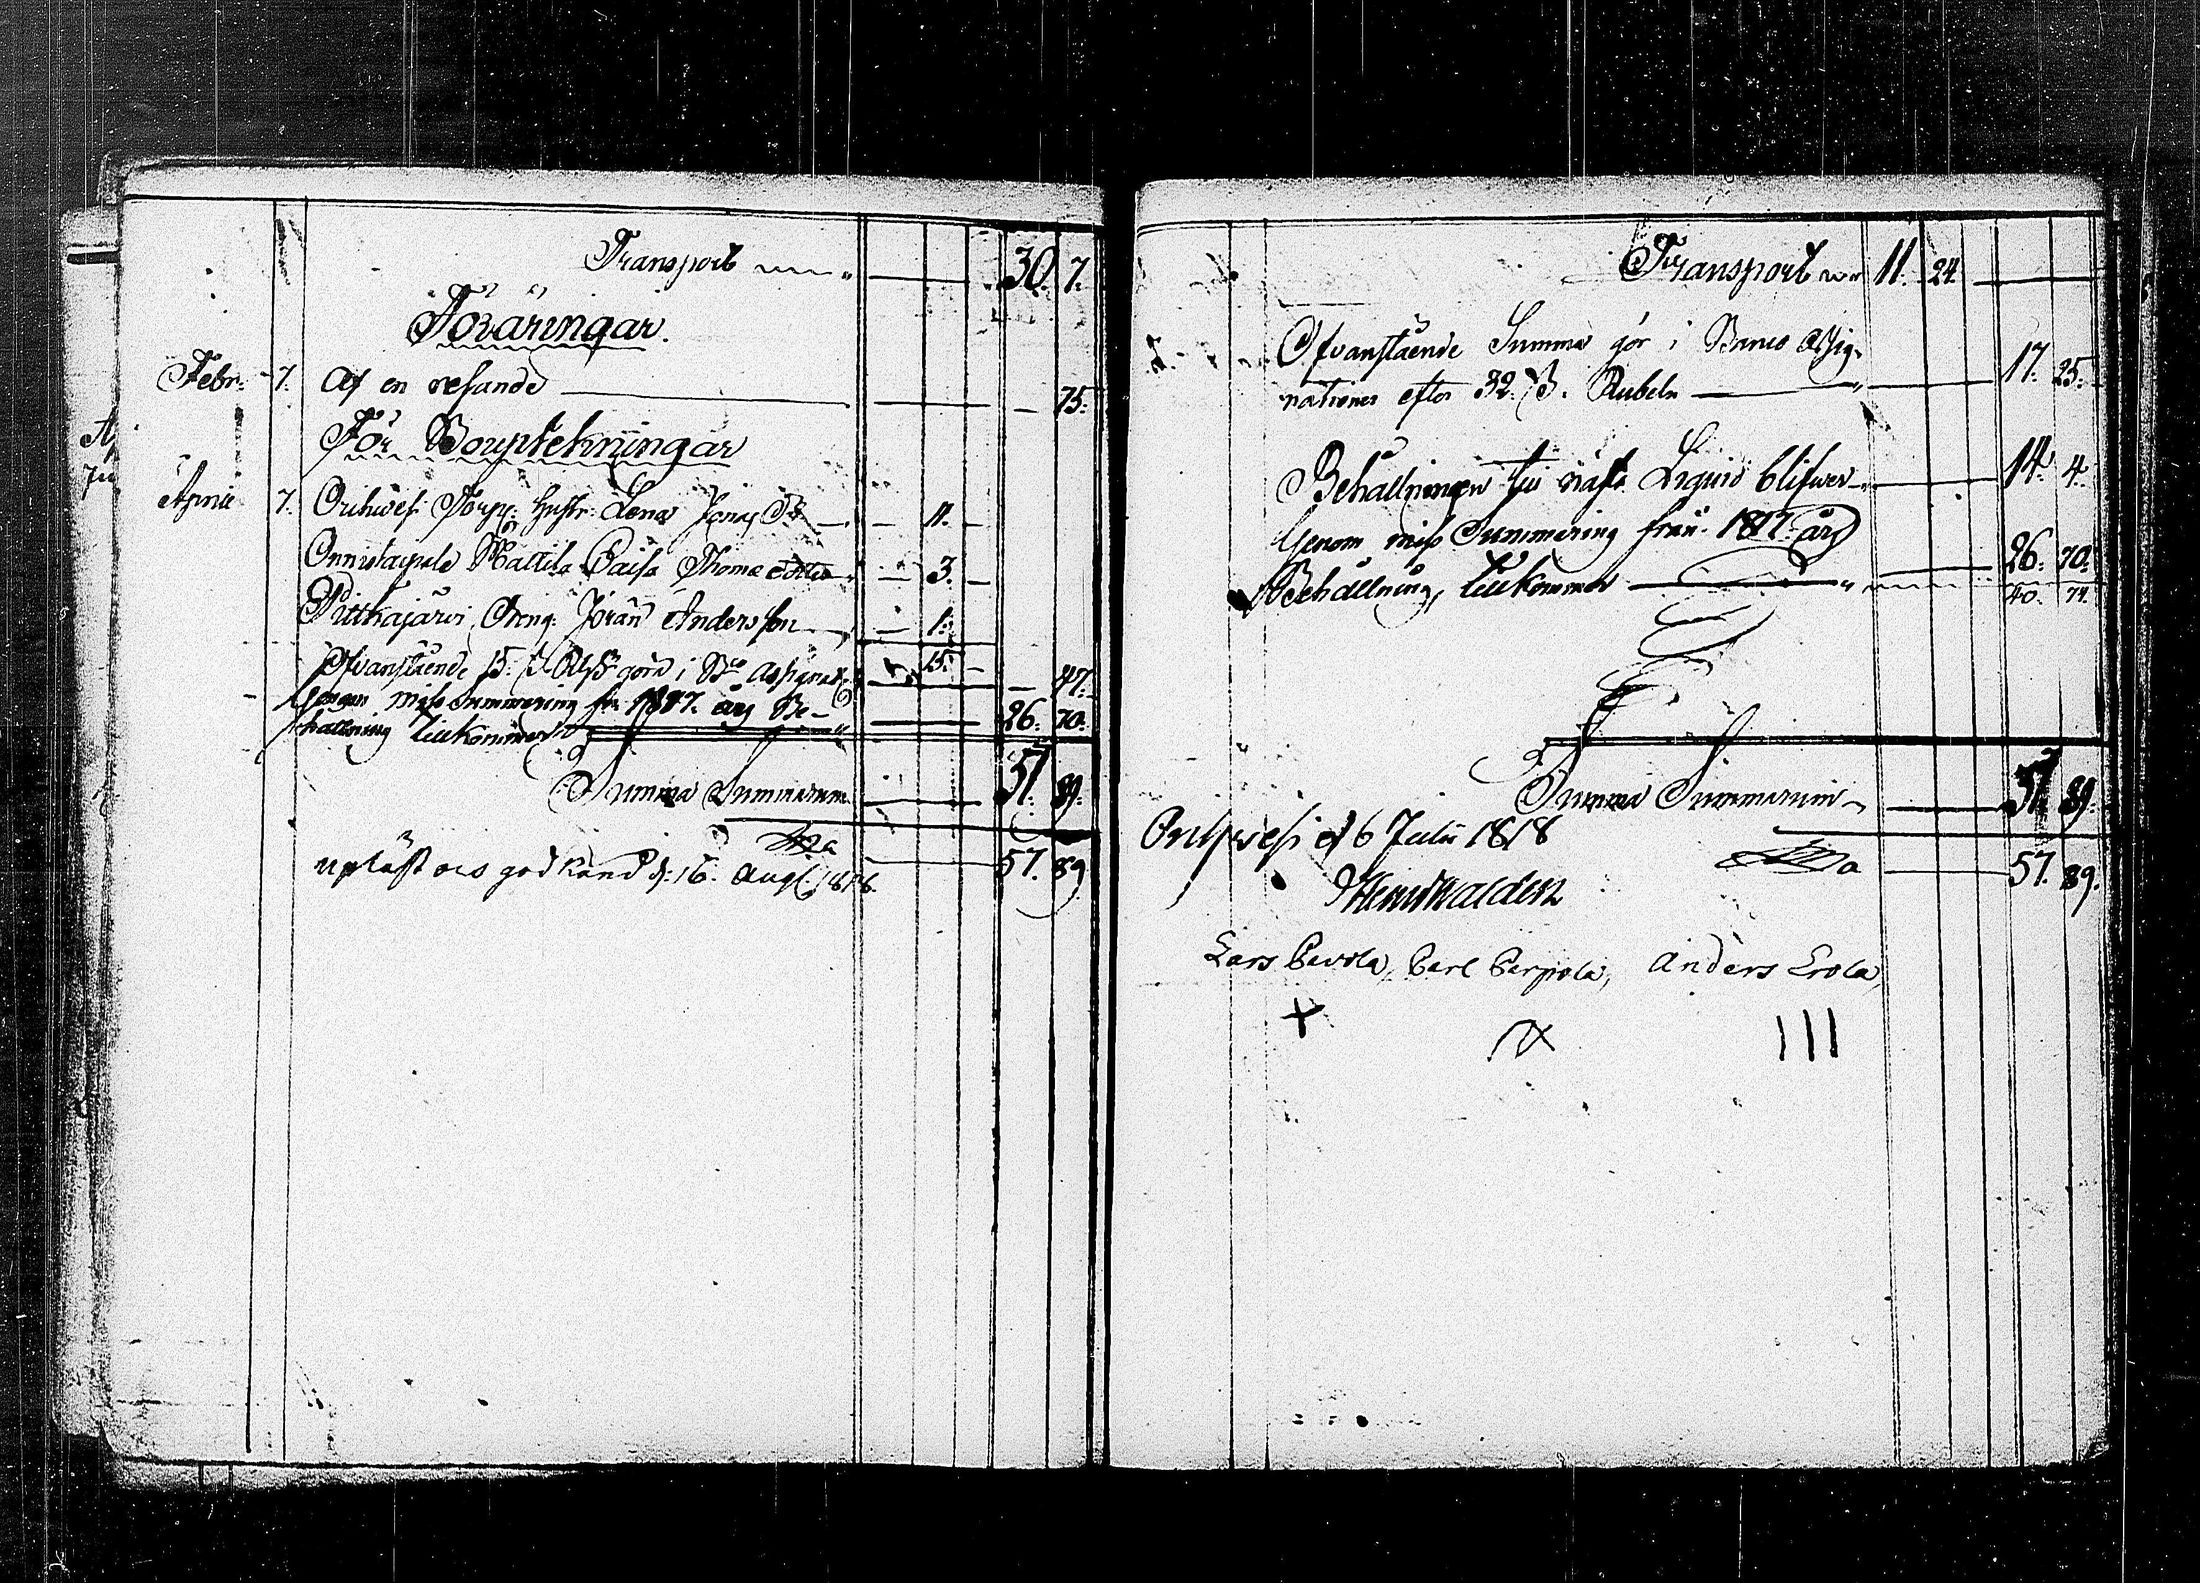 Transport 30. 7.
Föräringar.
Febr. 7. Af en resande — 75.
För Bouptekningar
April 7. Orihvesi Torp. Hustr. Lena Jonæ Dr — 11. —
Onnistaipale Mattila Caisa Thomæ dotter — 3. —
Pitkajärvi, Dreng. Jöran Andersson — 1.
Ofvanstående 15. s. Rgs göra i Bco Assignat. 15. — 47.
Genom miss Summering från 1817. års Be-
hållning tillkommer 26. 70.
Summa Summarum 57. 89.
57. 89
upläst och godkänd d. 16. Aug. 1818.
Transport 11. 24
Ofvanstående Summa gör i Banco Assig-
nationer efter 32. s. Rubeln 17. 25.
Behållningen till nästa Liquid blifver 14. 4.
Genom miss Summering från 1817. års
Behållning, tillkommer 26. 70.
40. 74.
Summa Summarum 57. 89.
Orihvesi d 6 Julii 1818
57. 89.
Lars Pavola, Carl Parpola, Anders Erola,